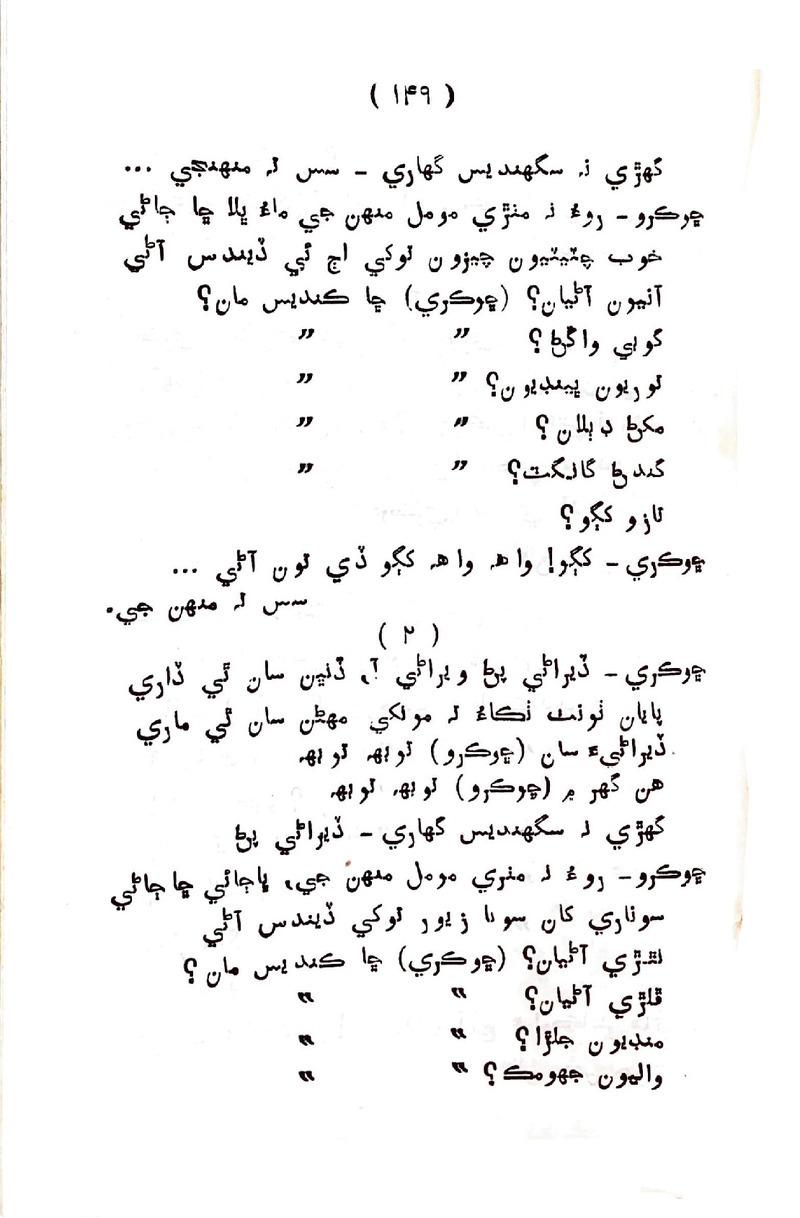 ( ۱۴۹ )
گهڙي نه سگهنديس گهاري – سس ته منهنجي ...
ڇوڪرو – روءُ نه مٺڙي مومل منهن جي ماءُ ڀلا ڇا ڄاڻي
خوب چٽيٽيون چيزون توکي اڄ ئي ڏيندس آڻي
آنيون آڻيان؟ (ڇوڪري) ڇا ڪنديس مان؟
گوبي واڱڻ؟ " "
توريون ڀينڊيون؟ " "
مکڻ ڊٻلان؟ " "
گنديڻ گانگٽ؟ " "
تازو کڳو؟
ڇوڪري – کڳو! واهه واهه کڳو ڏي تون آڻي ...
سس ته منهن جي.
( ۲ )
ڇوڪري – ڏيراڻي پڻ ويراڻي آ، ڏنڀن سان ٿي ڏاري
پايان ٺونٺ ٺڪاءُ ته مونکي مهڻن سان ٿي ماري
ڏيراڻيءَ سان (ڇوڪرو) توبهه توبهه
هن گهر ۾ (ڇوڪرو) توبهه توبهه
گهڙي نه سگهنديس گهاري – ڏيراڻي پڻ
ڇوڪرو – روءُ نه مٺڙي مومل منهن جي، ڀاڄائي ڇا ڄاڻي
سوناري کان سونا زيور توکي ڏيندس آڻي
نٿڙي آڻيان؟ (ڇوڪري) ڇا ڪنديس مان؟
ڦلڙي آڻيان؟ " "
منڊيون ڇلڙا؟ " "
واليون جهومڪ؟ " "